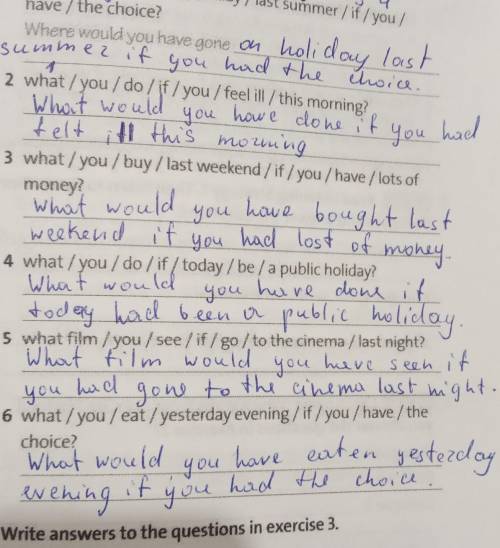 last summer / if / you /
have / the choice?
Where would you have gone on holiday last
summer if you had the choice.
2 what / you / do / if / you / feel ill / this morning?
What would you have done if you had
felt ill this morning
3 what / you / buy / last weekend / if / you / have / lots of
money?
What would you have bought last
weekend if you had lost of money.
4 what / you / do / if / today / be / a public holiday?
What would you have done if
today had been a public holiday.
5 what film / you / see / if / go / to the cinema / last night?
What film would you have seen if
you had gone to the cinema last night.
6 what / you / eat / yesterday evening / if / you / have / the
choice?
What would you have eaten yesterday
evening if you had the choice.
Write answers to the questions in exercise 3.